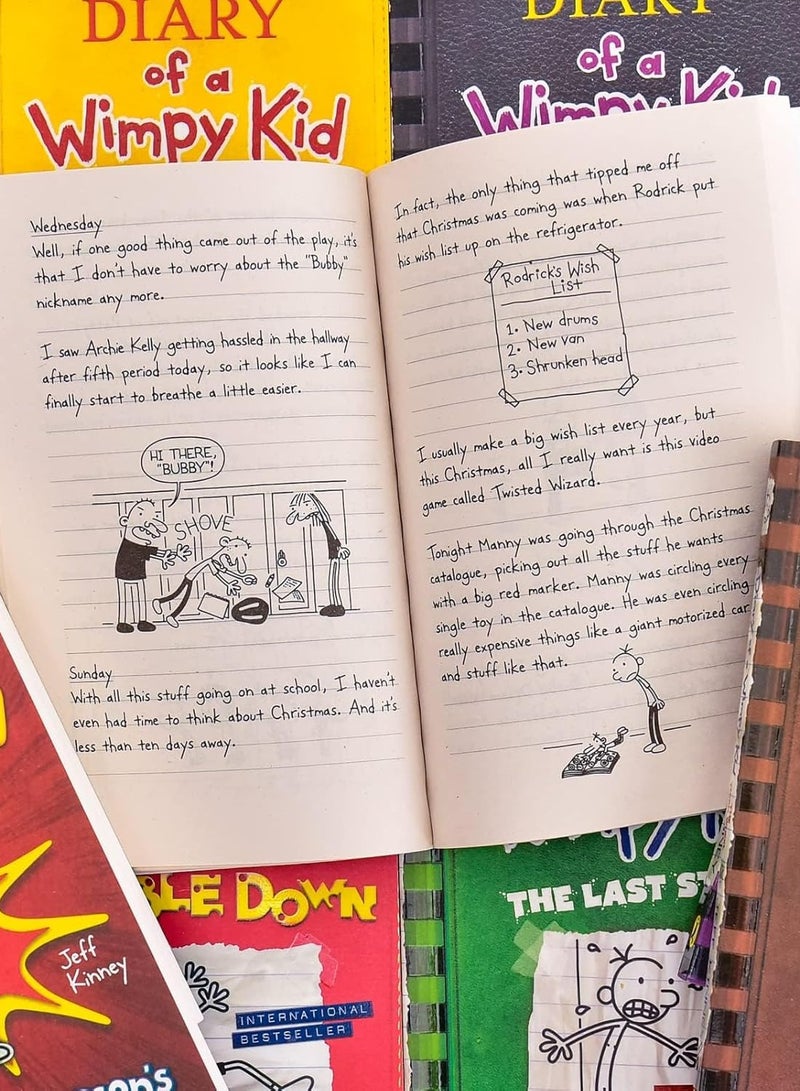 DIARY
of a
Wimpy Kid
DIARY
of a
Wimpy Kid
Wednesday
Well, if one good thing came out of the play, it's
that I don't have to worry about the "Bubby"
nickname any more.
I saw Archie Kelly getting hassled in the hallway
after fifth period today, so it looks like I can
finally start to breathe a little easier.
HI THERE,
"BUBBY"!
SHOVE
Sunday
With all this stuff going on at school, I haven't
even had time to think about Christmas. And it's
less than ten days away.
In fact, the only thing that tipped me off
that Christmas was coming was when Rodrick put
his wish list up on the refrigerator.
Rodrick's Wish
List
1. New drums
2. New van
3. Shrunken head
I usually make a big wish list every year, but
this Christmas, all I really want is this video
game called Twisted Wizard.
Tonight Manny was going through the Christmas
catalogue, picking out all the stuff he wants
with a big red marker. Manny was circling every
single toy in the catalogue. He was even circling
really expensive things like a giant motorized car
and stuff like that.
Jeff
Kinney
LE DOWN
INTERNATIONAL
BESTSELLER
THE LAST ST